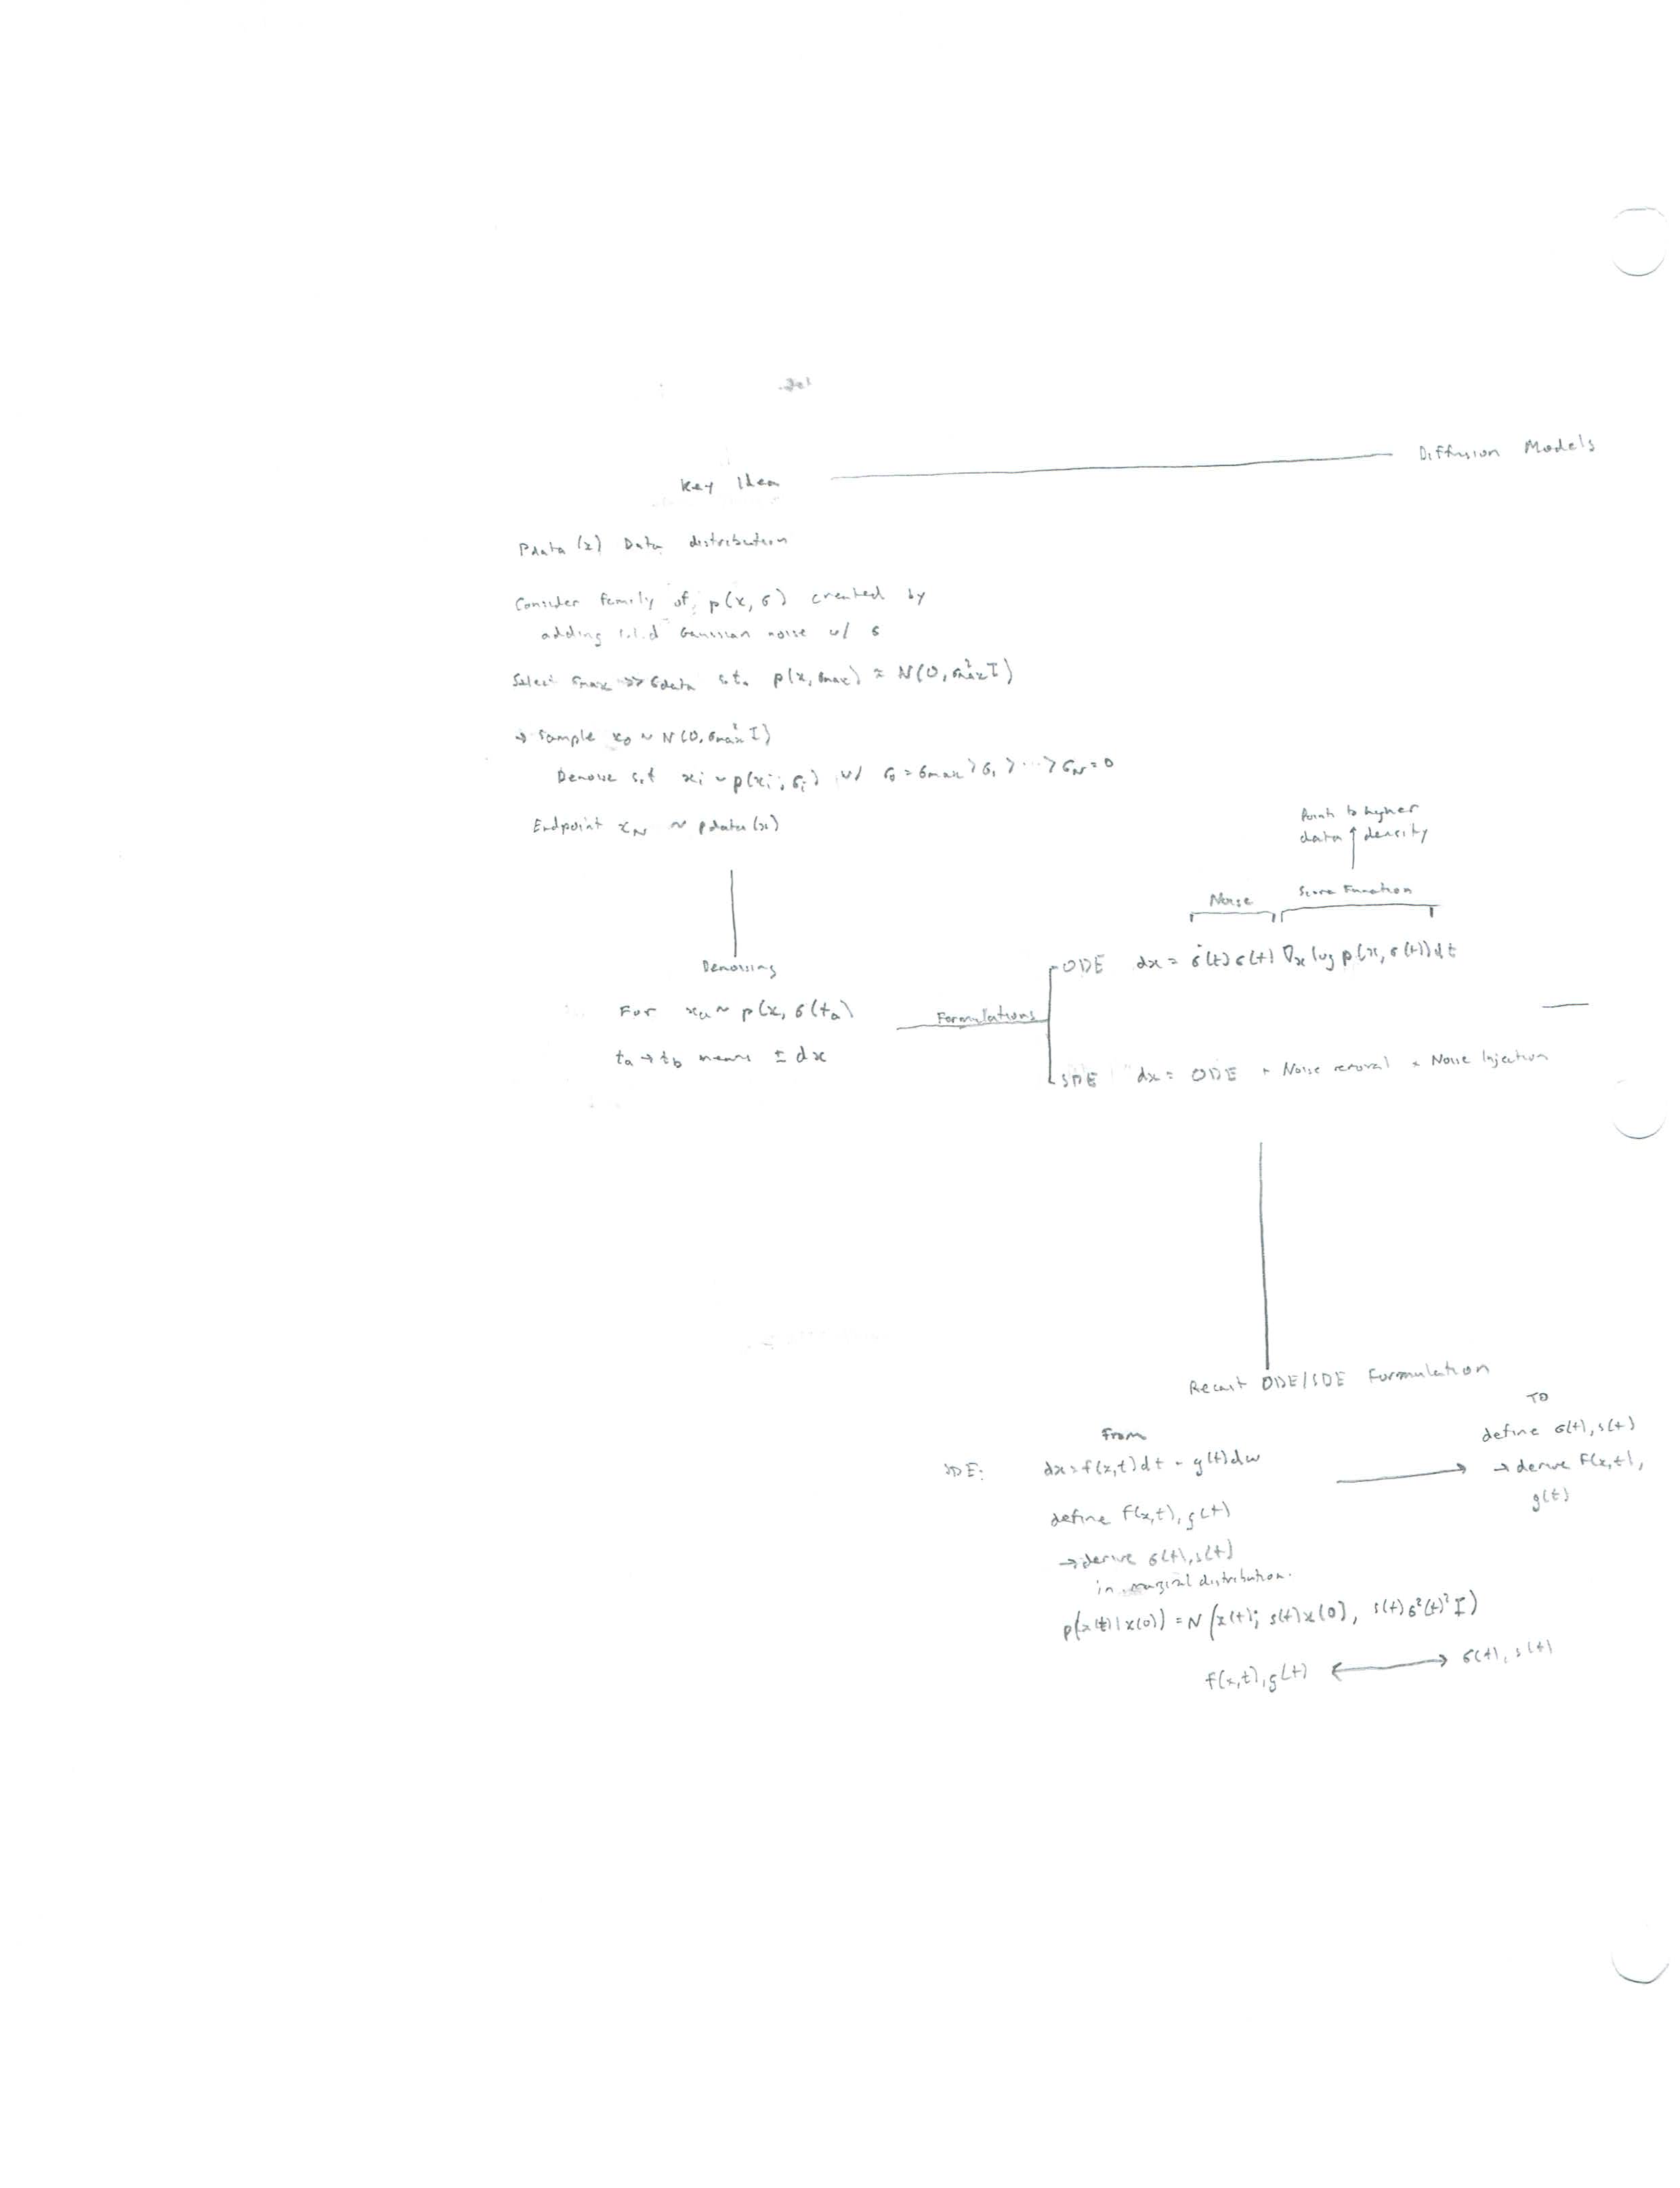 Diffusion Models
Key Idea
Pdata (x) Data distribution
Consider family of p(x, σ) created by
adding i.i.d Gaussian noise w/ σ
Select σmax >> σdata s.t. p(x, σmax) ≈ N(0, σmax² I)
→ Sample x₀ ~ N(0, σmax² I)
Denoise s.t xᵢ ~ p(xᵢ; σᵢ) w/ σ₀ = σmax > σ₁ > ... > σN = 0
Endpoint xN ~ pdata(x)
Denoising
For xa ~ p(x, σ(ta)
ta → tb means ± dx
Formulations
Points to higher
data density
Noise Score Function
ODE dx = σ̇(t) σ(t) ∇x log p(x, σ(t)) dt
SDE dx = ODE + Noise removal + Noise Injection
Recast ODE/SDE Formulation
From
SDE: dx = f(x,t)dt + g(t)dw
define f(x,t), g(t)
→ derive σ(t), s(t)
in distribution.
p(x(t)|x(0)) = N(x(t); s(t)x(0), s(t)σ²(t)² I)
f(x,t), g(t) ↔ σ(t), s(t)
TO
define σ(t), s(t)
→ derive f(x,t),
g(t)